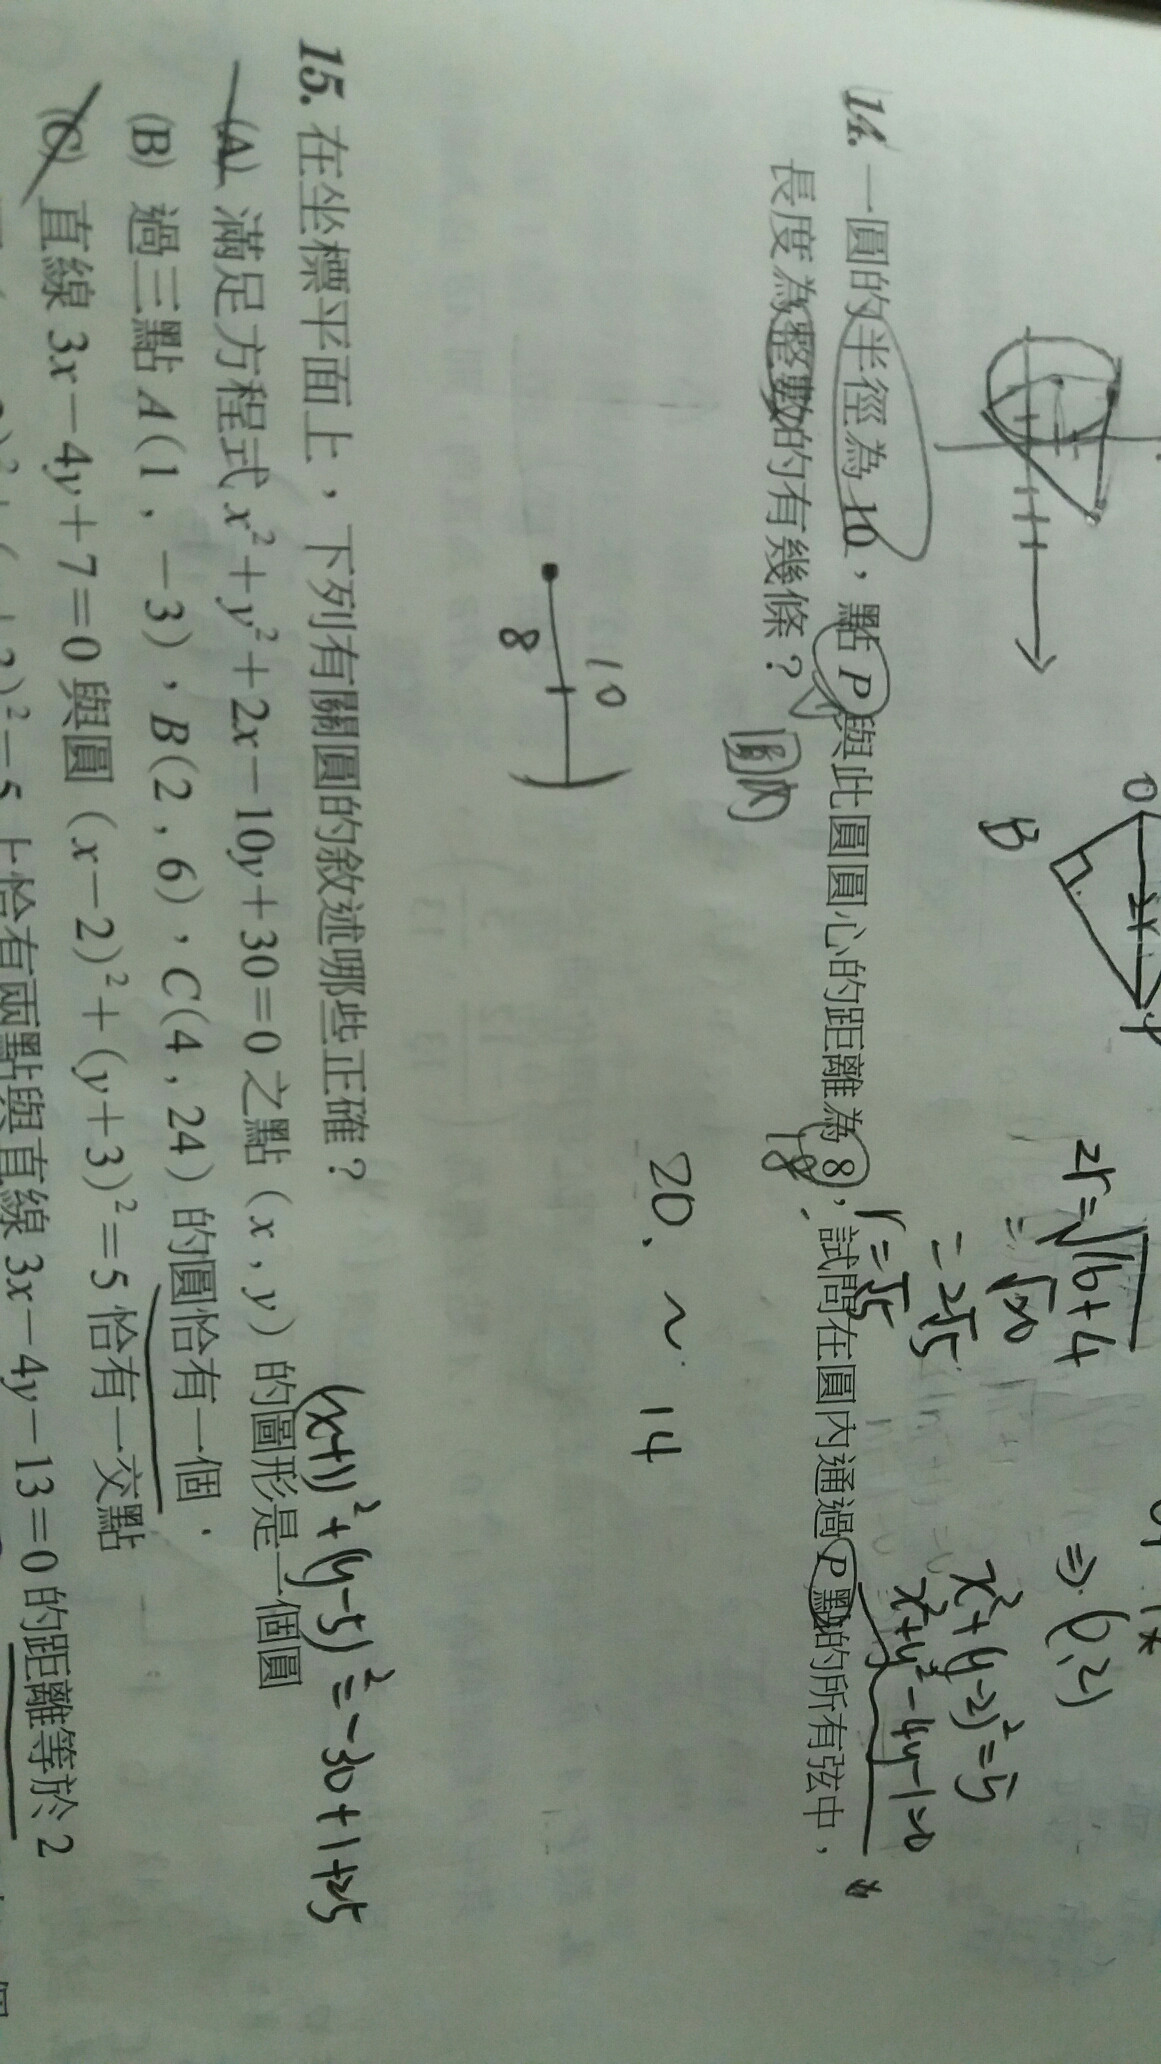 O
B
2r
P
2r=√16+4
=√20
=2√5
r=√5
⇒(0,2)
x²+(y-2)²=5
x²+y²-4y-1=0
14. 一圓的半徑為10，點P與此圓圓心的距離為8，試問在圓內通過P點的所有弦中，
長度為整數的有幾條？
圓內
18
20. ~ 14
10
8
15. 在坐標平面上，下列有關圓的敘述哪些正確？
(x+1)²+(y-5)²=-30+1+25
(A) 滿足方程式x²+y²+2x-10y+30=0之點(x,y)的圖形是一個圓
(B) 過三點A(1,-3)，B(2,6)，C(4,24)的圓恰有一個
(C) 直線3x-4y+7=0與圓(x-2)²+(y+3)²=5恰有一交點
²=5上恰有兩點與直線3x-4y-13=0的距離等於2